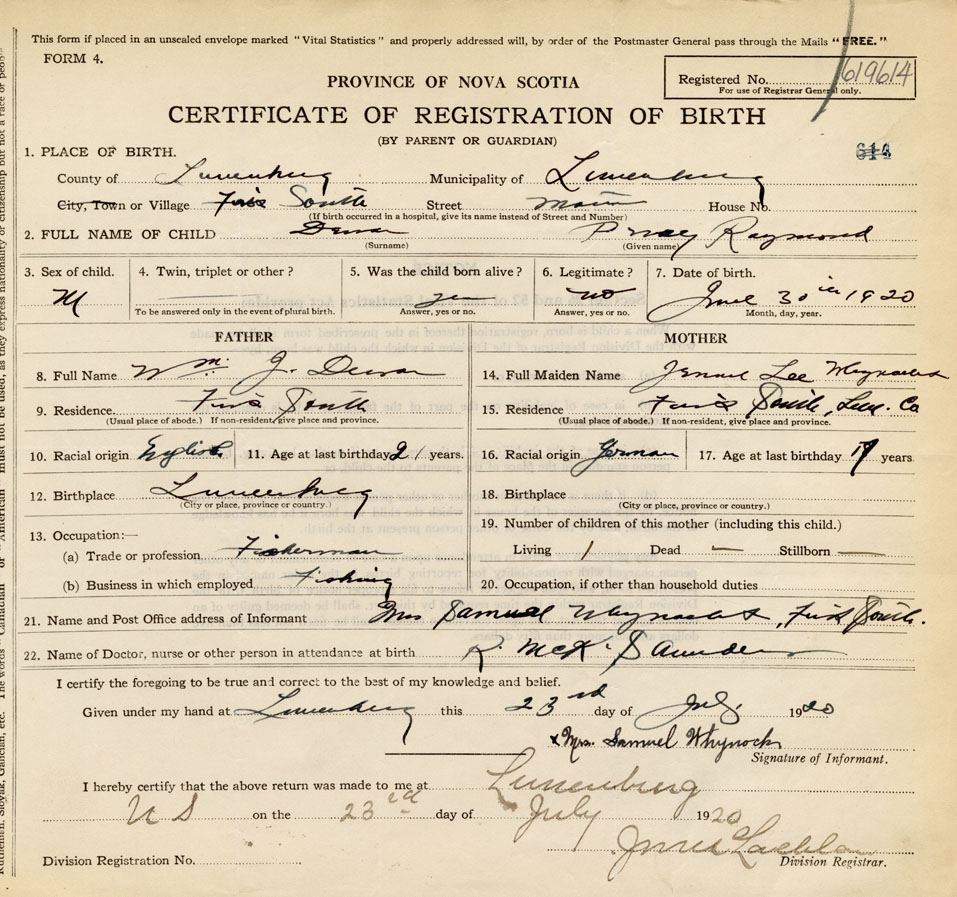 This form if placed in an unsealed envelope marked "Vital Statistics" and properly addressed will, by order of the Postmaster General pass through the Mails "FREE."
FORM 4.
Registered No. 619614
For use of Registrar General only.
PROVINCE OF NOVA SCOTIA
CERTIFICATE OF REGISTRATION OF BIRTH
(BY PARENT OR GUARDIAN)
614
1. PLACE OF BIRTH.
County of Lunenburg Municipality of Lunenburg
City, Town or Village First South Street Main House No.
(If birth occurred in a hospital, give its name instead of Street and Number)
2. FULL NAME OF CHILD Raymond
(Surname) (Given name)
3. Sex of child. 4. Twin, triplet or other? 5. Was the child born alive? 6. Legitimate? 7. Date of birth.
M yes no June 30th 1920
To be answered only in the event of plural birth. Answer, yes or no. Answer, yes or no. Month, day, year.
FATHER MOTHER
8. Full Name Wm. J. 14. Full Maiden Name Jennie Lee Whynacht
9. Residence First South 15. Residence First South, Lun. Co
(Usual place of abode.) If non-resident, give place and province. (Usual place of abode.) If non-resident, give place and province.
10. Racial origin English 11. Age at last birthday 21 years. 16. Racial origin German 17. Age at last birthday 17 years
12. Birthplace Lunenburg 18. Birthplace
(City or place, province or country.) (City or place, province or country.)
13. Occupation:— 19. Number of children of this mother (including this child.)
(a) Trade or profession Fisherman Living 1 Dead — Stillborn —
(b) Business in which employed Fishing 20. Occupation, if other than household duties
21. Name and Post Office address of Informant Mrs Samuel Whynacht, First South.
22. Name of Doctor, nurse or other person in attendance at birth R. McK. Saunders
I certify the foregoing to be true and correct to the best of my knowledge and belief.
Given under my hand at Lunenburg this 23rd day of July 1920
x Mrs. Samuel Whynock
Signature of Informant.
I hereby certify that the above return was made to me at Lunenburg
N S on the 23rd day of July 1920
Division Registration No. Division Registrar.